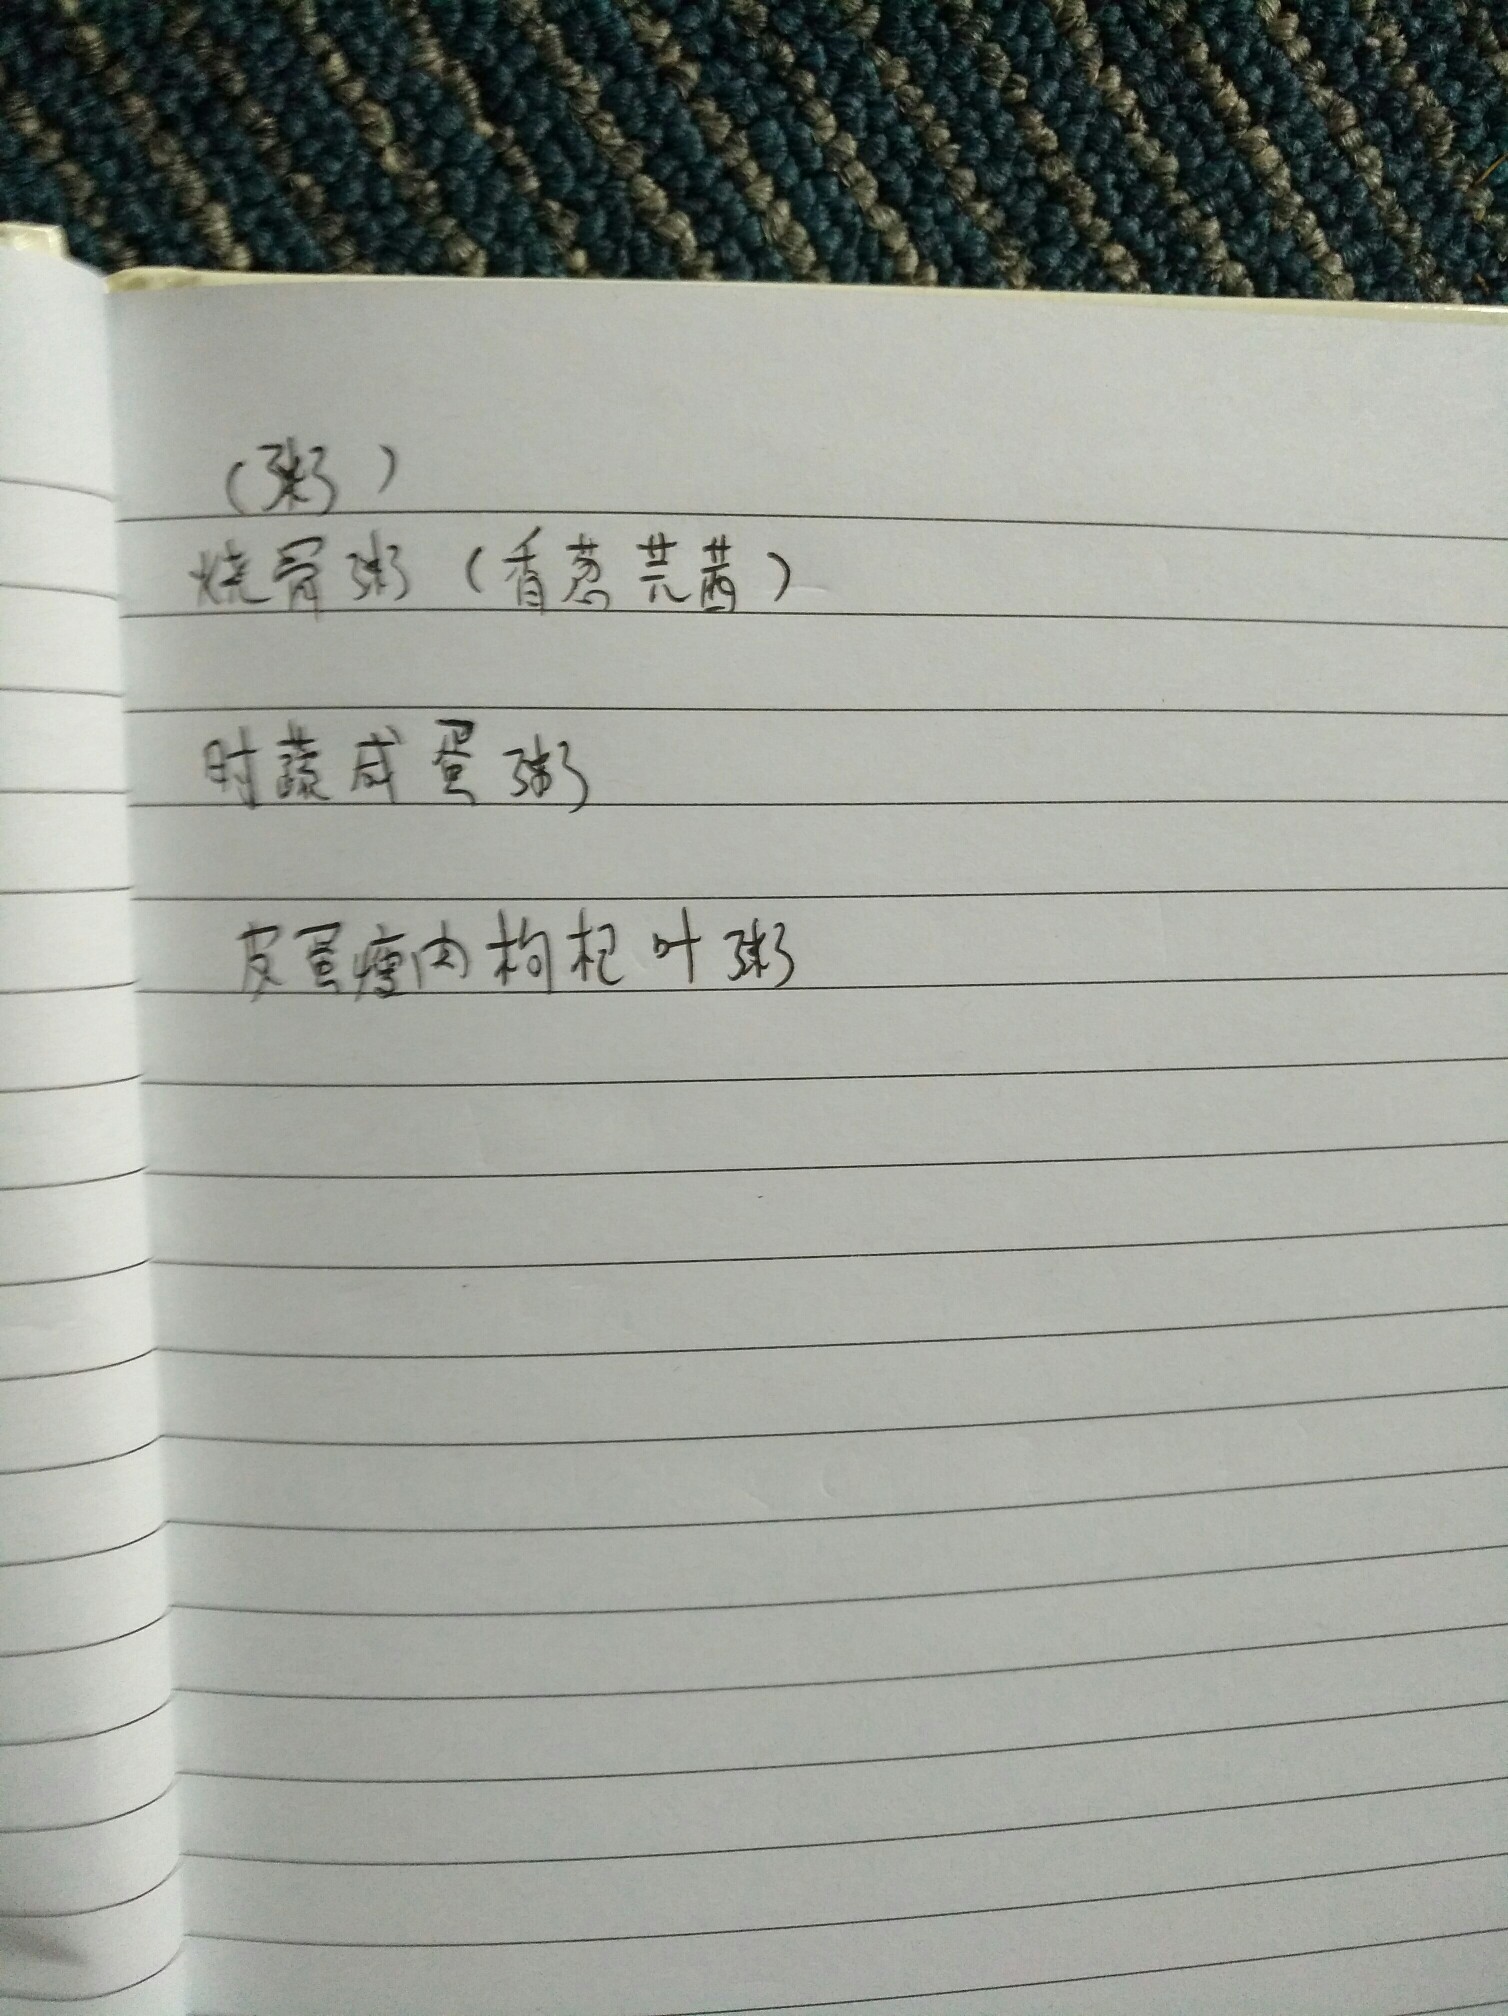 (粥)
烧骨粥(香葱芫茜)
时蔬咸蛋粥
皮蛋瘦肉枸杞叶粥